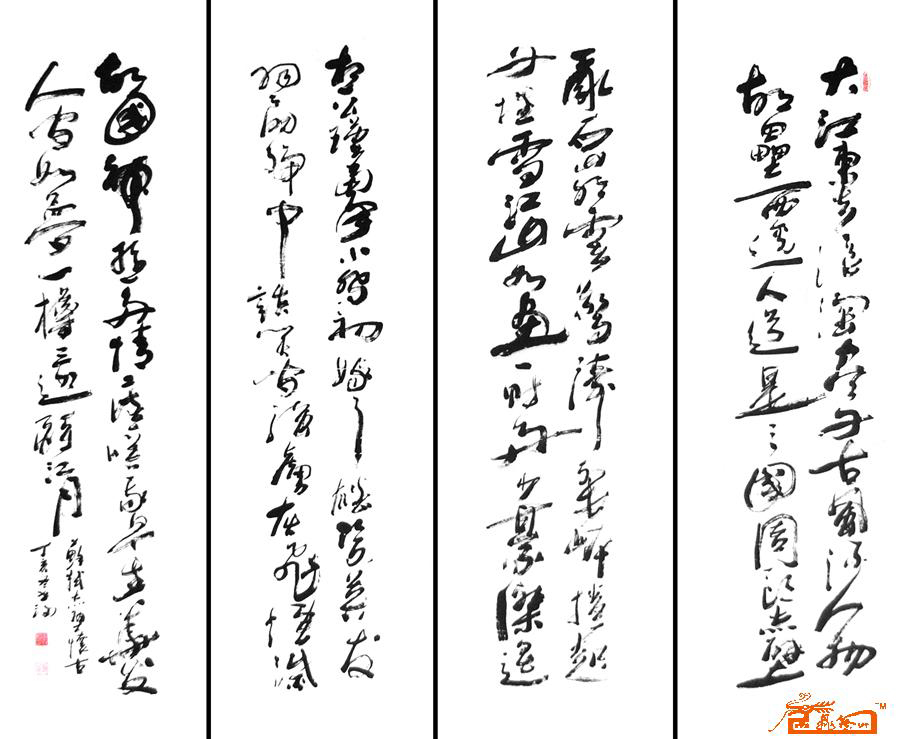 大江東去浪淘盡千古風流人物
故壘西邊人道是三國周郎赤壁
亂石崩雲驚濤裂岸捲起
千堆雪江山如畫一時多少豪傑遥
想公瑾當年小喬初嫁了雄姿英发
羽扇綸巾談笑间強虜灰飛煙滅
故國神遊多情應嘆我早生華发
人间如夢一樽還酹江月
蘇軾赤壁懷古
丁亥